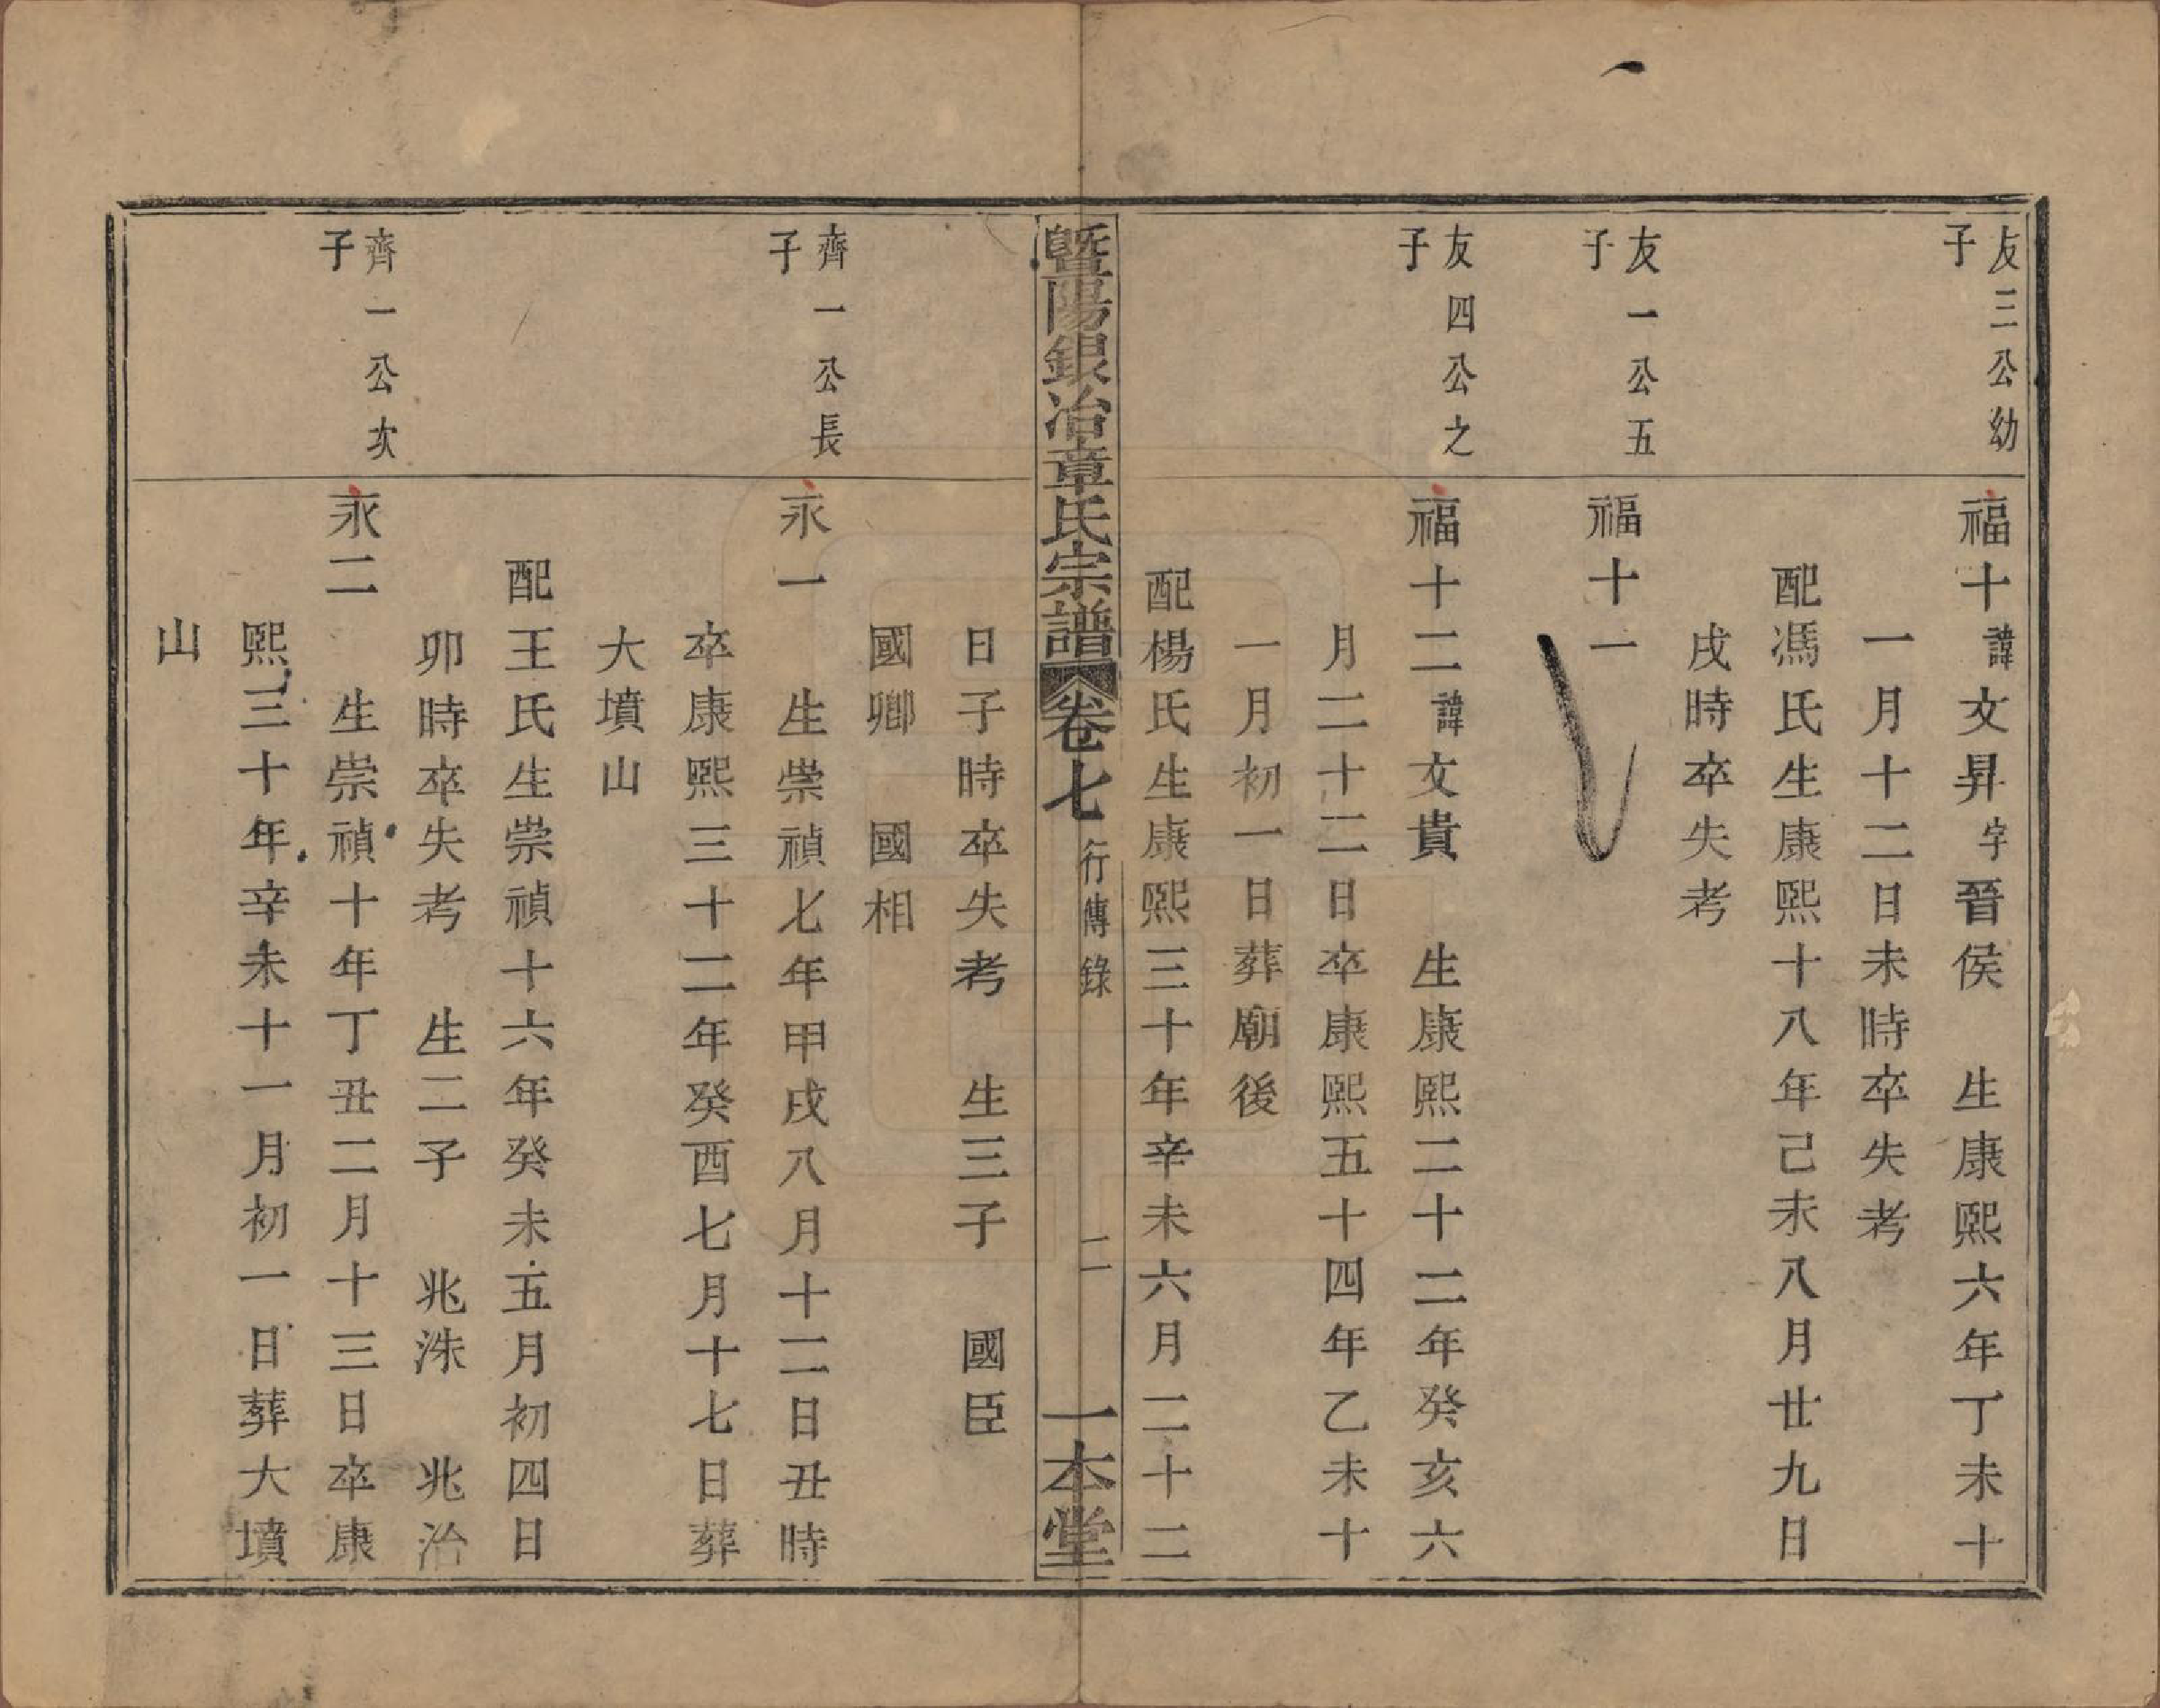 友三公幼
子
福十諱文昇字晉侯　生康熙六年丁未十
一月十二日未時卒失考
配馮氏生康熙十八年己未八月廿九日
戌時卒失考
友一公五
子
福十一
友四公之
子
福十二諱文貴　生康熙二十二年癸亥六
月二十二日卒康熙五十四年乙未十
一月初一日葬廟後
配楊氏生康熙三十年辛未六月二十二
暨陽銀冶章氏宗譜　卷七　行傳錄　二　一本堂
日子時卒失考　生三子　國臣
國卿　國相
齊一公長
子
永一　生崇禎七年甲戌八月十二日丑時
卒康熙三十二年癸酉七月十七日葬
大墳山
配王氏生崇禎十六年癸未五月初四日
卯時卒失考　生二子　兆洙　兆治
齊一公次
子
永二　生崇禎十年丁丑二月十三日卒康
熙三十年辛未十一月初一日葬大墳
山